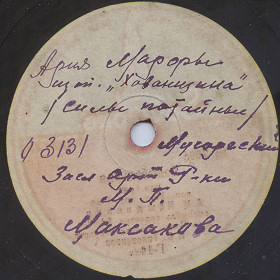 Ария Марфы
из оп. „Хованщина"
/Силы потайные/
0 3131 Мусоргский
Засл. арт. Р-ки
М. П.
Максакова